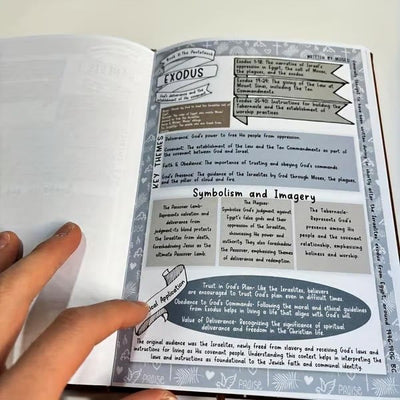 WRITTEN BY: MOSES
EXODUS
God's deliverance and the
establishment of the covenant
Exodus 1-18: The narrative of Israel's
oppression in Egypt, the call of Moses,
the plagues, and the exodus.
Exodus 19-24: The giving of the Law at
Mount Sinai, including the Ten
Commandments
Exodus 25-40: Instructions for building the
Tabernacle and the establishment of
worship practices
KEY THEMES
Deliverance: God's power to free His people from oppression.
Covenant: The establishment of the Law and the Ten Commandments as part of
the covenant between God and Israel.
Faith & Obedience: The importance of trusting and obeying God's commands.
God's Presence: The guidance of the Israelites by God through Moses, the plagues,
and the pillar of cloud and fire.
Symbolism and Imagery
The Passover Lamb:
Represents salvation and
deliverance from
judgment-its blood protects
the Israelites from death,
foreshadowing Jesus as the
ultimate Passover Lamb.
The Plagues:
Symbolize God's judgment against
Egypt's false gods and their
oppression of the Israelites,
showcasing His power and
authority. They also foreshadow
the Passover, emphasizing themes
of deliverance and redemption.
The Tabernacle:
Represents God's
presence among His
people and the covenant
relationship, emphasizing
holiness and worship.
Application
Trust in God's Plan: Like the Israelites, believers
are encouraged to trust God's plan even in difficult times
Obedience to God's Commands: Following the moral and ethical guidelines
from Exodus helps in living a life that aligns with God's will.
Value of Deliverance: Recognizing the significance of spiritual
deliverance and freedom in the Christian life.
The original audience was the Israelites, newly freed from slavery and receiving God's laws and
instructions for living as His covenant people. Understanding this context helps in interpreting the
laws and instructions as foundational to the Jewish faith and communal identity.
PRAISE
PRAISE